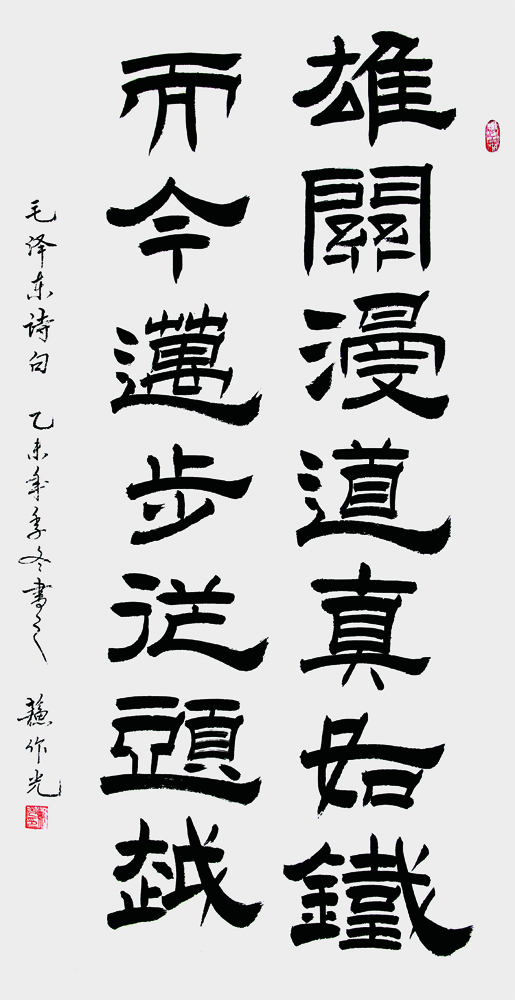 雄關漫道真如鐵
而今邁步從頭越
毛泽东诗句 乙未年季冬書之 蘓作光